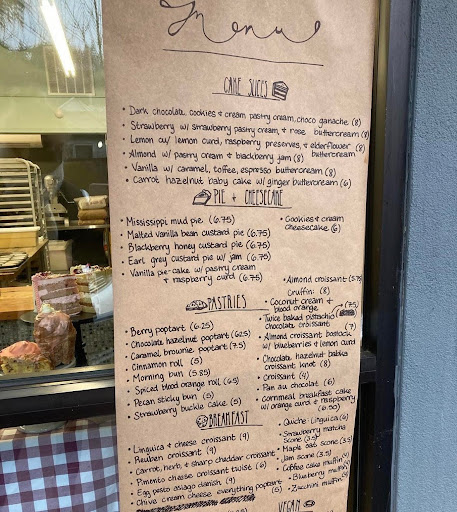 Menu
CAKE SLICES
• Dark chocolate, cookies & cream pastry cream, choco ganache (8)
• Strawberry w/ strawberry pastry cream, & rose buttercream (8)
• Lemon w/ lemon curd, raspberry preserves, & elderflower buttercream (8)
• Almond w/ pastry cream & blackberry jam (8)
• Vanilla w/ caramel, toffee, espresso buttercream (8)
• Carrot hazelnut baby cake w/ ginger buttercream (6)
PIE & CHEESECAKE
• Mississippi mud pie (6.75)
• Malted vanilla bean custard pie (6.75)
• Blackberry honey custard pie (6.75)
• Earl grey custard pie w/ jam (6.75)
• Vanilla pie-cake w/ pastry cream
& raspberry curd (6.75)
• Cookies & cream
cheesecake (6)
PASTRIES
• Berry poptart (6.25)
• Chocolate hazelnut poptart (6.25)
• Caramel brownie poptart (7.5)
• Cinnamon roll (5)
• Morning bun (5.85)
• Spiced blood orange roll (6.5)
• Pecan sticky bun (5)
• Strawberry buckle Cake (5)
• Almond croissant (5.75)
Cruffin: (8)
• Coconut cream &
blood orange (7.5)
• Twice baked pistachio
chocolate croissant (7)
• Almond croissant bostock
w/ blueberries & lemon curd
• Chocolate hazelnut babka
croissant knot (8)
• croissant (4)
• Pan au chocolat (6)
• cornmeal breakfast cake
w/ orange curd & raspberry
(6.50)
BREAKFAST
• Linguica & cheese croissant (9)
• Reuben croissant (9)
• Carrot, herb, & sharp cheddar croissant
• Pimento cheese croissant twist (6)
• Egg pesto asiago danish (9)
• Chive cream cheese everything poptart (6)
• Quiche: Linguica (6)
• Strawberry matcha
Scone (3.5)
• Maple oat scone (3.5)
• Jam scone (3.5)
• Coffee cake muffin
• Blueberry muffin
• Zucchini muffin
VEGAN